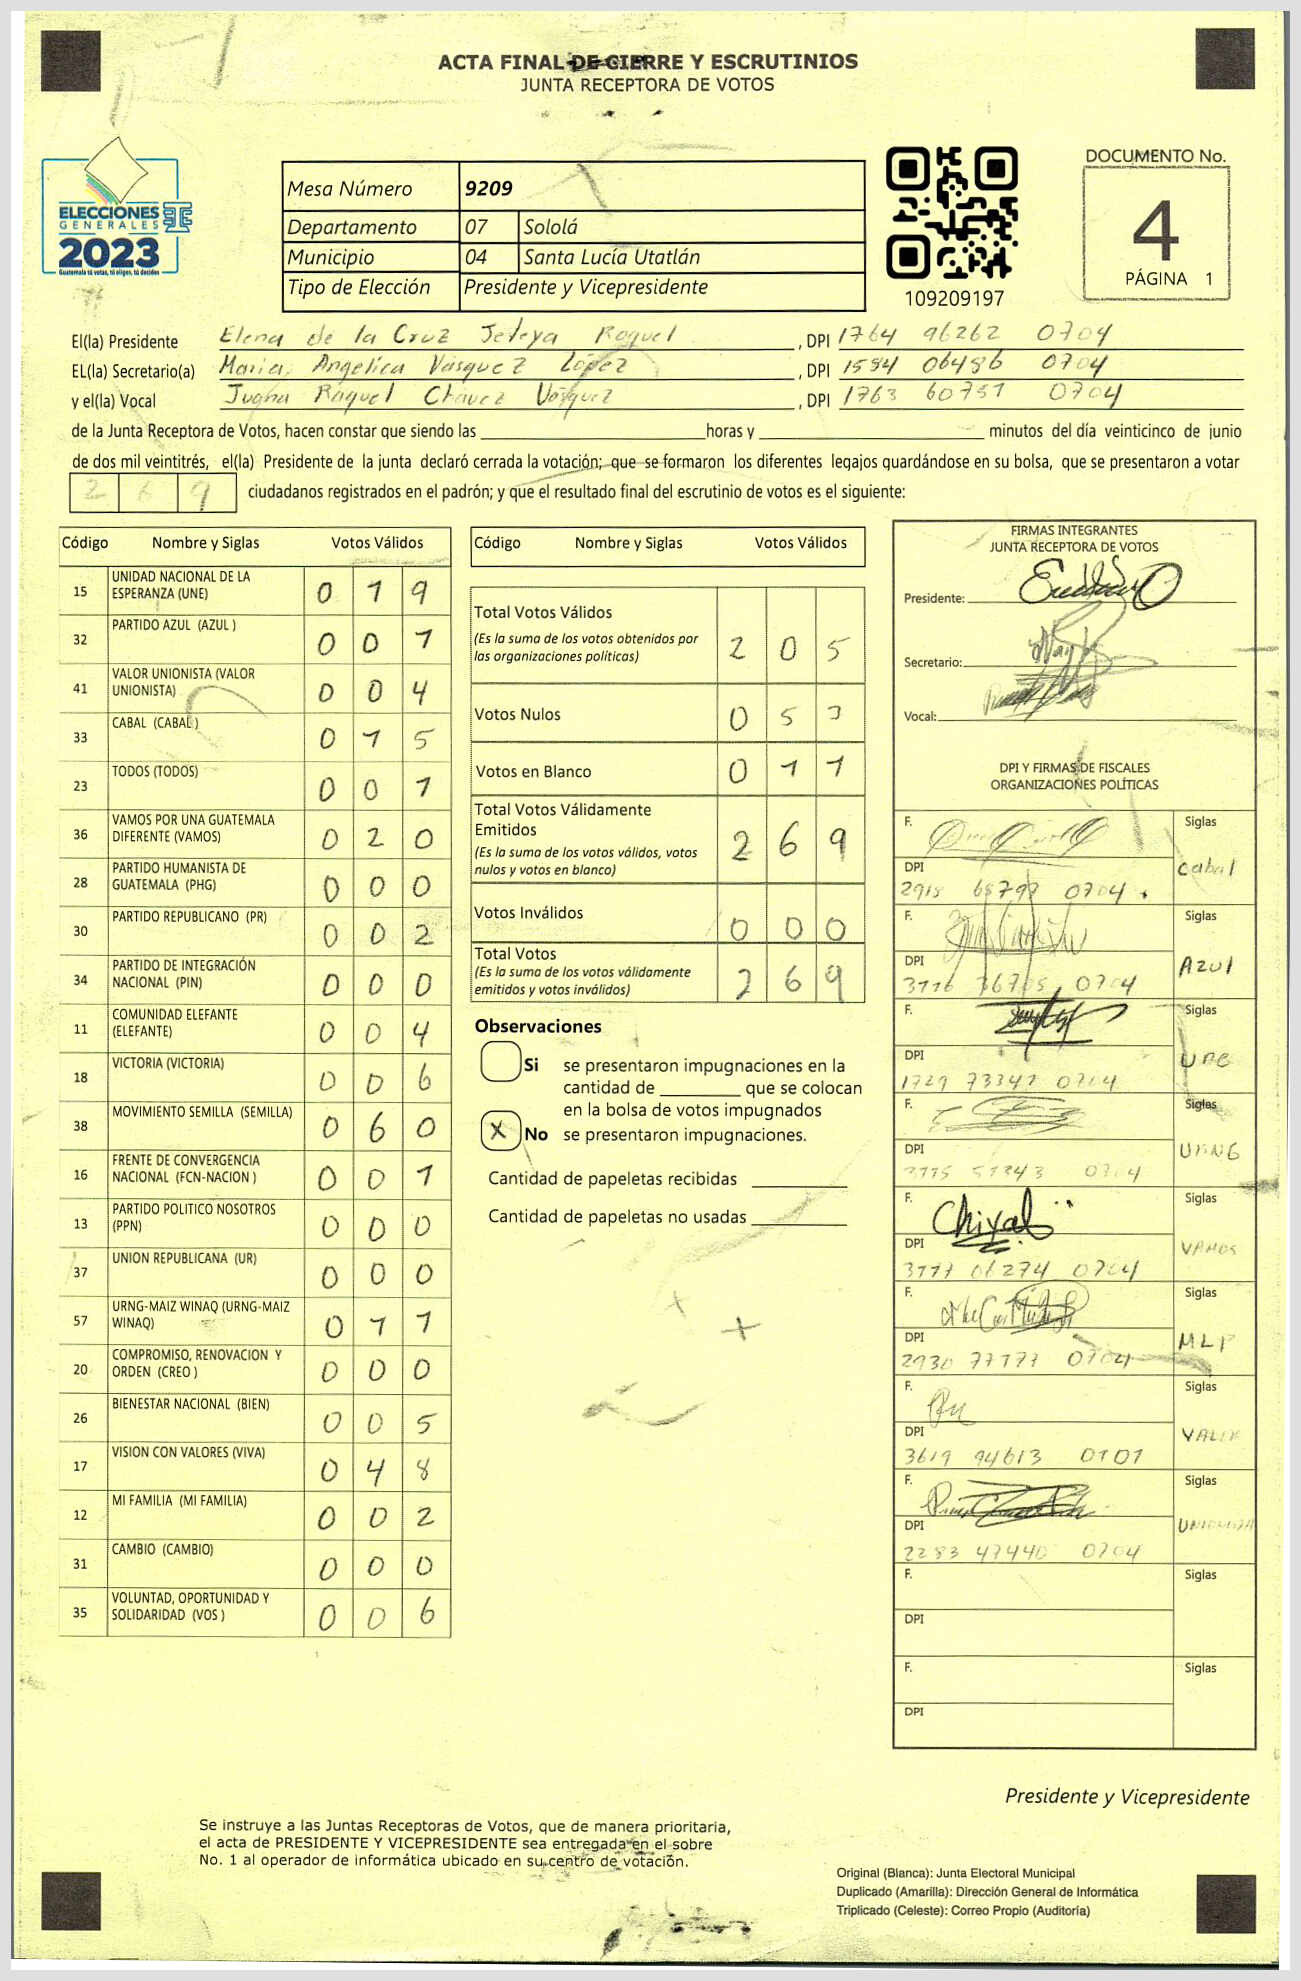 ACTA FINAL DE CIERRE Y ESCRUTINIOS
JUNTA RECEPTORA DE VOTOS
ELECCIONES
GENERALES
2023
Guatemala tú votas, tú eliges, tú decides
Mesa Número 9209
Departamento 07 Sololá
Municipio 04 Santa Lucía Utatlán
Tipo de Elección Presidente y Vicepresidente
109209197
DOCUMENTO No.
4
PÁGINA 1
El(la) Presidente Elena de la Cruz Raquel , DPI 1764 96262 0704
EL(la) Secretario(a) Maria Angelica Vásquez López , DPI 1594 06486 0704
y el(la) Vocal Raquel Chávez Vásquez , DPI 1763 60751 0704
de la Junta Receptora de Votos, hacen constar que siendo las horas y minutos del día veinticinco de junio
de dos mil veintitrés, el(la) Presidente de la junta declaró cerrada la votación; que se formaron los diferentes legajos guardándose en su bolsa, que se presentaron a votar
269 ciudadanos registrados en el padrón; y que el resultado final del escrutinio de votos es el siguiente:
Código Nombre y Siglas Votos Válidos
15 UNIDAD NACIONAL DE LA ESPERANZA (UNE) 0 1 9
32 PARTIDO AZUL (AZUL ) 0 0 1
41 VALOR UNIONISTA (VALOR UNIONISTA) 0 0 4
33 CABAL (CABAL ) 0 1 5
23 TODOS (TODOS) 0 0 1
36 VAMOS POR UNA GUATEMALA DIFERENTE (VAMOS) 0 2 0
28 PARTIDO HUMANISTA DE GUATEMALA (PHG) 0 0 0
30 PARTIDO REPUBLICANO (PR) 0 0 2
34 PARTIDO DE INTEGRACIÓN NACIONAL (PIN) 0 0 0
11 COMUNIDAD ELEFANTE (ELEFANTE) 0 0 4
18 VICTORIA (VICTORIA) 0 0 6
38 MOVIMIENTO SEMILLA (SEMILLA) 0 6 0
16 FRENTE DE CONVERGENCIA NACIONAL (FCN-NACION ) 0 0 1
13 PARTIDO POLITICO NOSOTROS (PPN) 0 0 0
37 UNION REPUBLICANA (UR) 0 0 0
57 URNG-MAIZ WINAQ (URNG-MAIZ WINAQ) 0 1 1
20 COMPROMISO, RENOVACION Y ORDEN (CREO ) 0 0 0
26 BIENESTAR NACIONAL (BIEN) 0 0 5
17 VISION CON VALORES (VIVA) 0 4 8
12 MI FAMILIA (MI FAMILIA) 0 0 2
31 CAMBIO (CAMBIO) 0 0 0
35 VOLUNTAD, OPORTUNIDAD Y SOLIDARIDAD (VOS ) 0 0 6
Código Nombre y Siglas Votos Válidos
Total Votos Válidos 2 0 5
(Es la suma de los votos obtenidos por
las organizaciones políticas)
Votos Nulos 0 5 3
Votos en Blanco 0 1 1
Total Votos Válidamente
Emitidos 2 6 9
(Es la suma de los votos válidos, votos
nulos y votos en blanco)
Votos Inválidos 0 0 0
Total Votos 2 6 9
(Es la suma de los votos válidamente
emitidos y votos inválidos)
Observaciones
Si se presentaron impugnaciones en la
cantidad de que se colocan
en la bolsa de votos impugnados
X No se presentaron impugnaciones.
Cantidad de papeletas recibidas
Cantidad de papeletas no usadas
FIRMAS INTEGRANTES
JUNTA RECEPTORA DE VOTOS
Presidente:
Secretario:
Vocal:
DPI Y FIRMAS DE FISCALES
ORGANIZACIONES POLÍTICAS
F. Siglas
DPI Cabal
0704
F. Siglas
DPI Azul
0704
F. Siglas
DPI
F. Siglas
DPI
0704
F. Siglas
DPI VAMOS
0704
F. Siglas
DPI MLP
2930 77177 0704
F. Siglas
DPI
3619 94613 0101
F. Siglas
DPI
2283 47440 0704
F. Siglas
DPI
F. Siglas
DPI
Presidente y Vicepresidente
Se instruye a las Juntas Receptoras de Votos, que de manera prioritaria,
el acta de PRESIDENTE Y VICEPRESIDENTE sea entregada en el sobre
No. 1 al operador de informática ubicado en su centro de votación.
Original (Blanca): Junta Electoral Municipal
Duplicado (Amarilla): Dirección General de Informática
Triplicado (Celeste): Correo Propio (Auditoría)